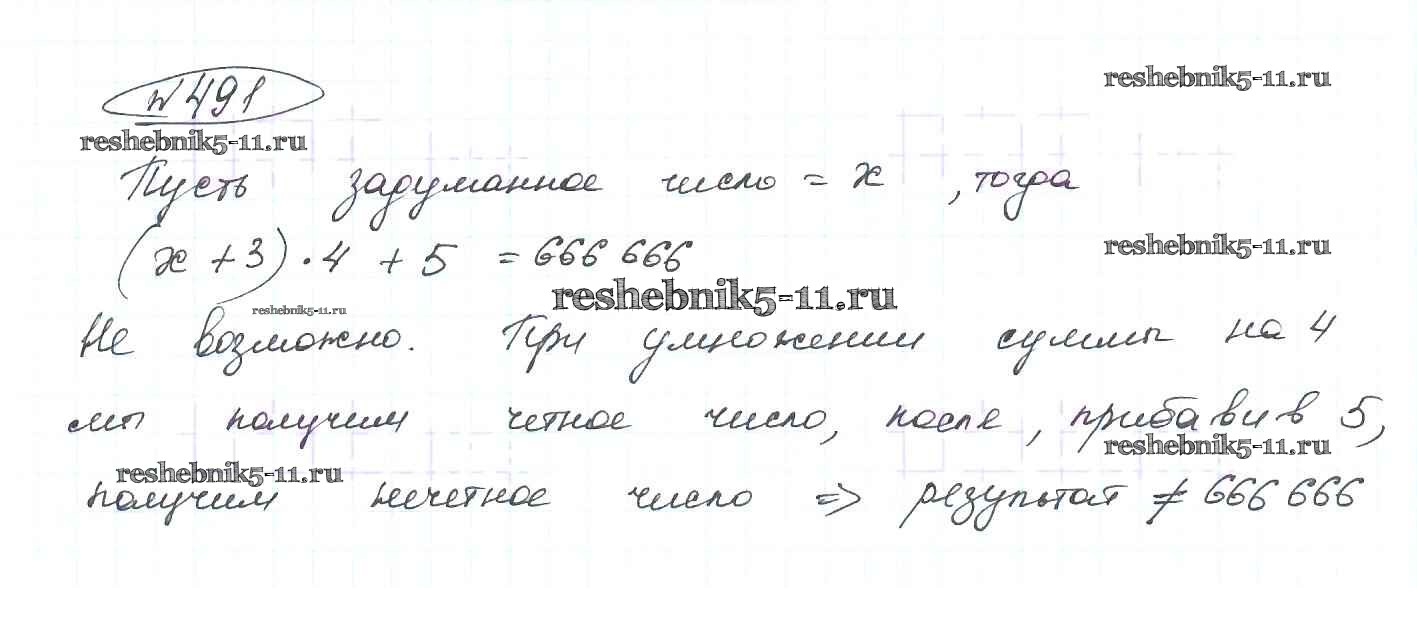 № 491
reshebnik5-11.ru
reshebnik5-11.ru
Пусть задуманное число = x , тогда
(x + 3) · 4 + 5 = 666 666
reshebnik5-11.ru
reshebnik5-11.ru
reshebnik5-11.ru
Не возможно. При умножении суммы на 4
мы получим четное число, после, прибавив 5,
reshebnik5-11.ru
reshebnik5-11.ru
получим нечетное число => результат ≠ 666 666